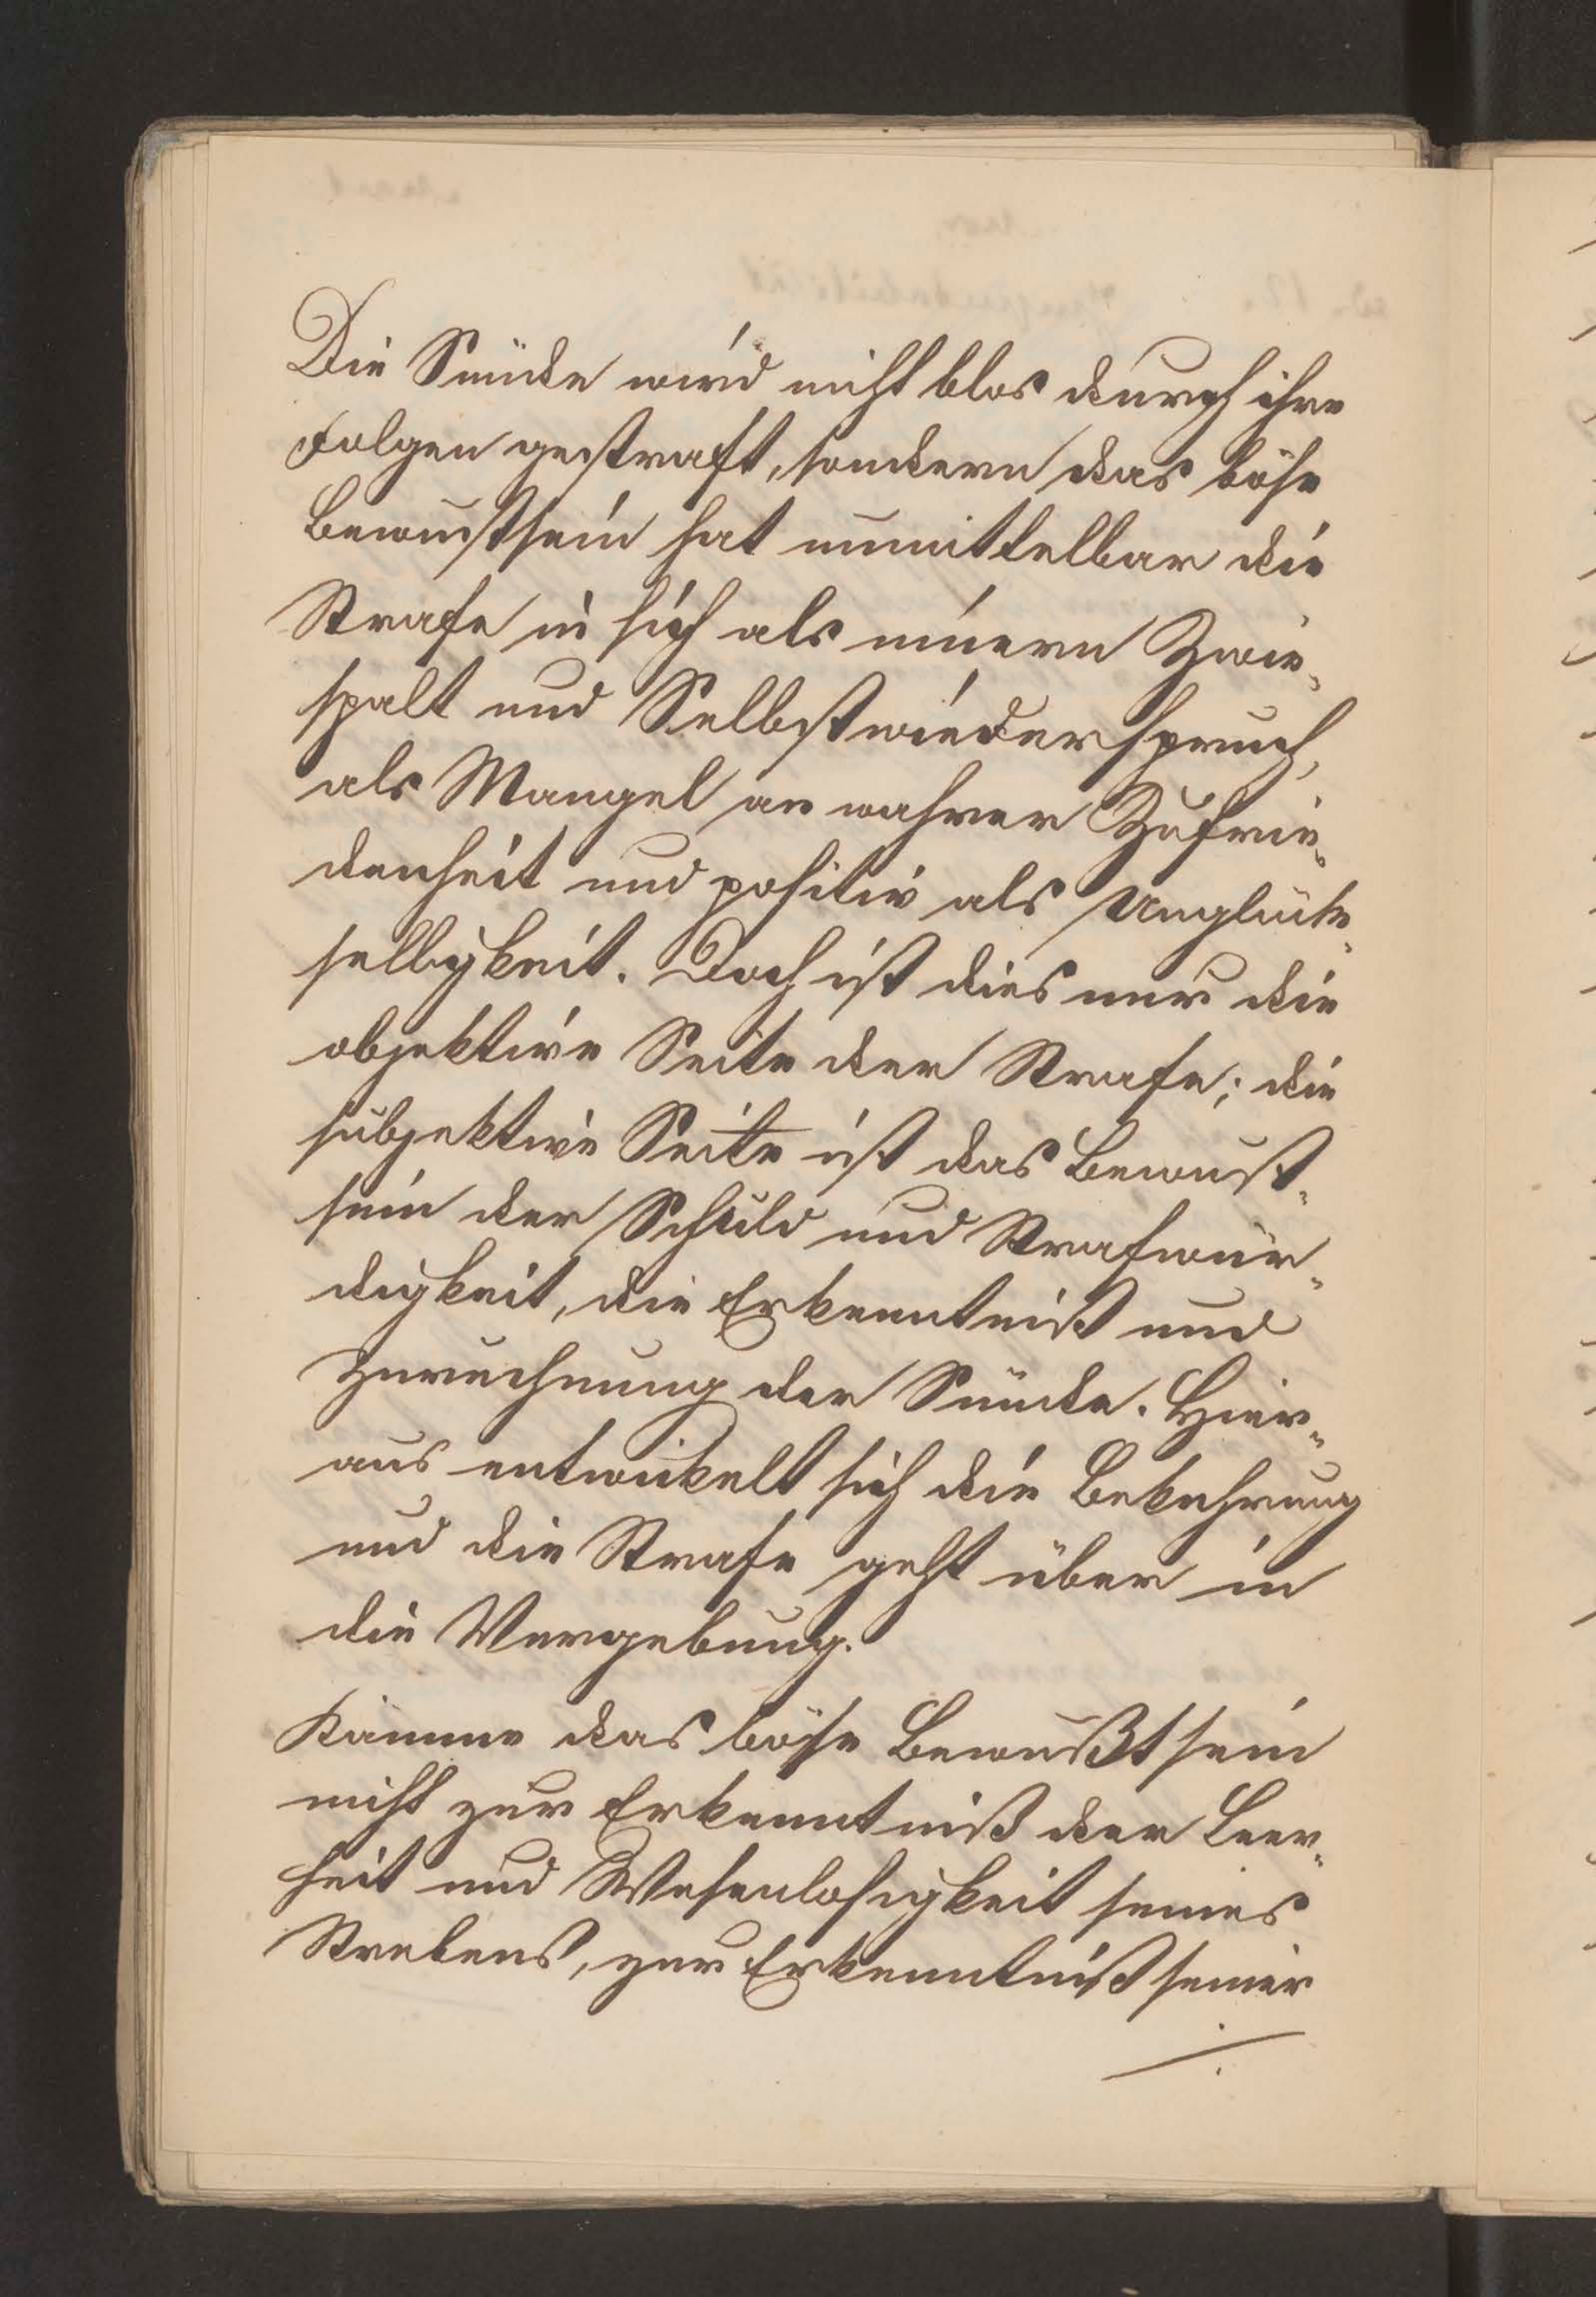 Die Sünde wird nicht blos durch ihre
Folgen gestraft, sondern das böse
Bewustsein hat unmittelbar die
Strafe in sich als innern Zwie-
spalt und Selbstwiederspruch,
als Mangel an wahrer Zufrie-
denheit und positiv als Unglück-
selligkeit. Doch ist dies nur die
objektive Seite der Strafe; die
subjektive Seite ist das Bewust-
sein der Schuld und Strafwür-
digkeit, die Erkenntniß und
Zurechnung der Sünde. Hier-
aus entwickelt sich die Bekehrung
und die Strafe geht über in
die Vergebung.
Kämme das böse Bewußtsein
nicht zur Erkenntniß der Leer-
heit und Wesenlosigkeit seines
Strebens, zur Erkenntniß seiner